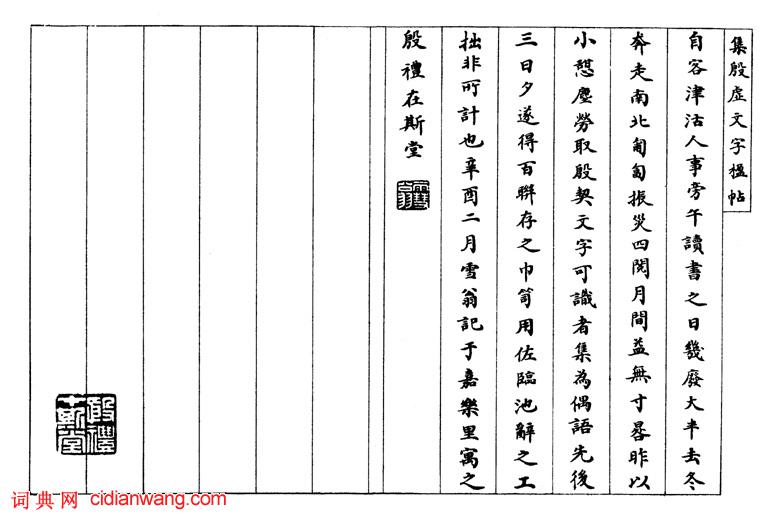 集殷虛文字楹帖
自客津沽人事旁午讀書之日幾廢大半去冬
奔走南北匍匐振災四閱月間益無寸晷昨以
小憩塵勞取殷契文字可識者集為偶語先後
三日夕遂得百聯存之巾笥用佐臨池辭之工
拙非所計也辛酉二月雪翁記于嘉樂里寓之
殷禮在斯堂
殷禮在斯堂
词典网 cidianwang.com